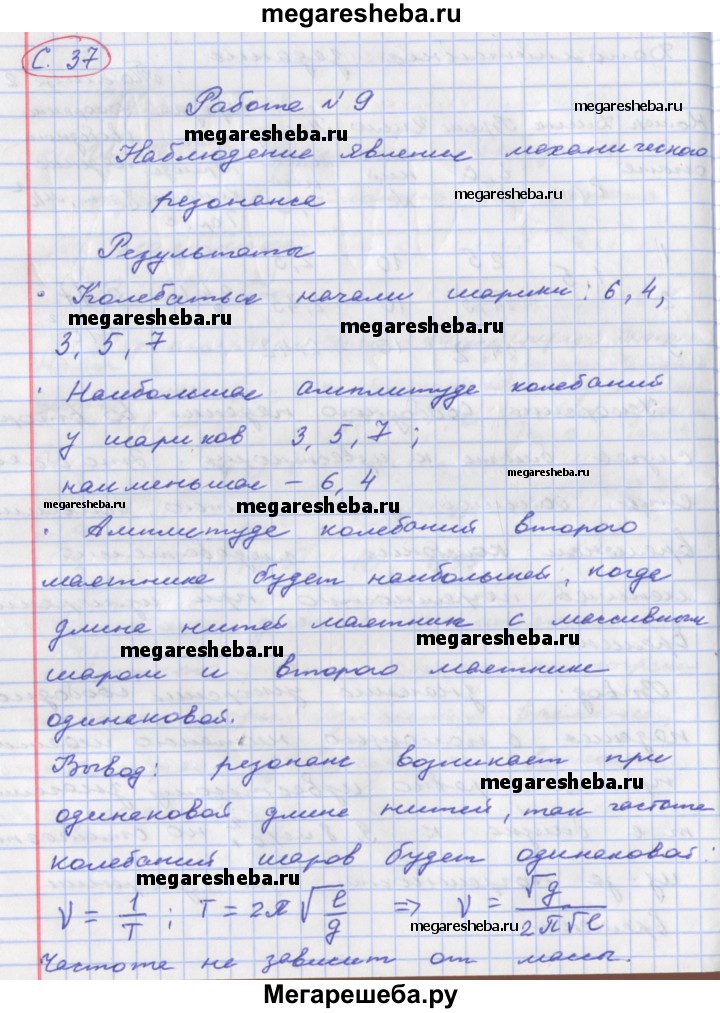 megaresheba.ru
С. 37
Работа №9
megaresheba.ru
megaresheba.ru
Наблюдение явление механического
megaresheba.ru
резонанса
Результаты
megaresheba.ru
· Колебаться начали шарики: 6, 4,
megaresheba.ru
megaresheba.ru
3, 5, 7
· Наибольшая амплитуда колебаний
у шариков 3, 5, 7;
megaresheba.ru
наименьшая – 6, 4
megaresheba.ru
megaresheba.ru
· Амплитуда колебаний второго
маятника будет наибольшей, когда
длина нитей маятник с массивным
megaresheba.ru
megaresheba.ru
шаром и второго маятника
одинаковой.
Вывод: резонанс возникает при
megaresheba.ru
одинаковой длине нитей, так частота
колебаний шаров будет одинаковой:
megaresheba.ru
ν = 1/T ; T = 2π√(l/g) ⇒ ν = √g/(2π√l)
megaresheba.ru
Частота не зависит от массы.
Мегарешеба.ру